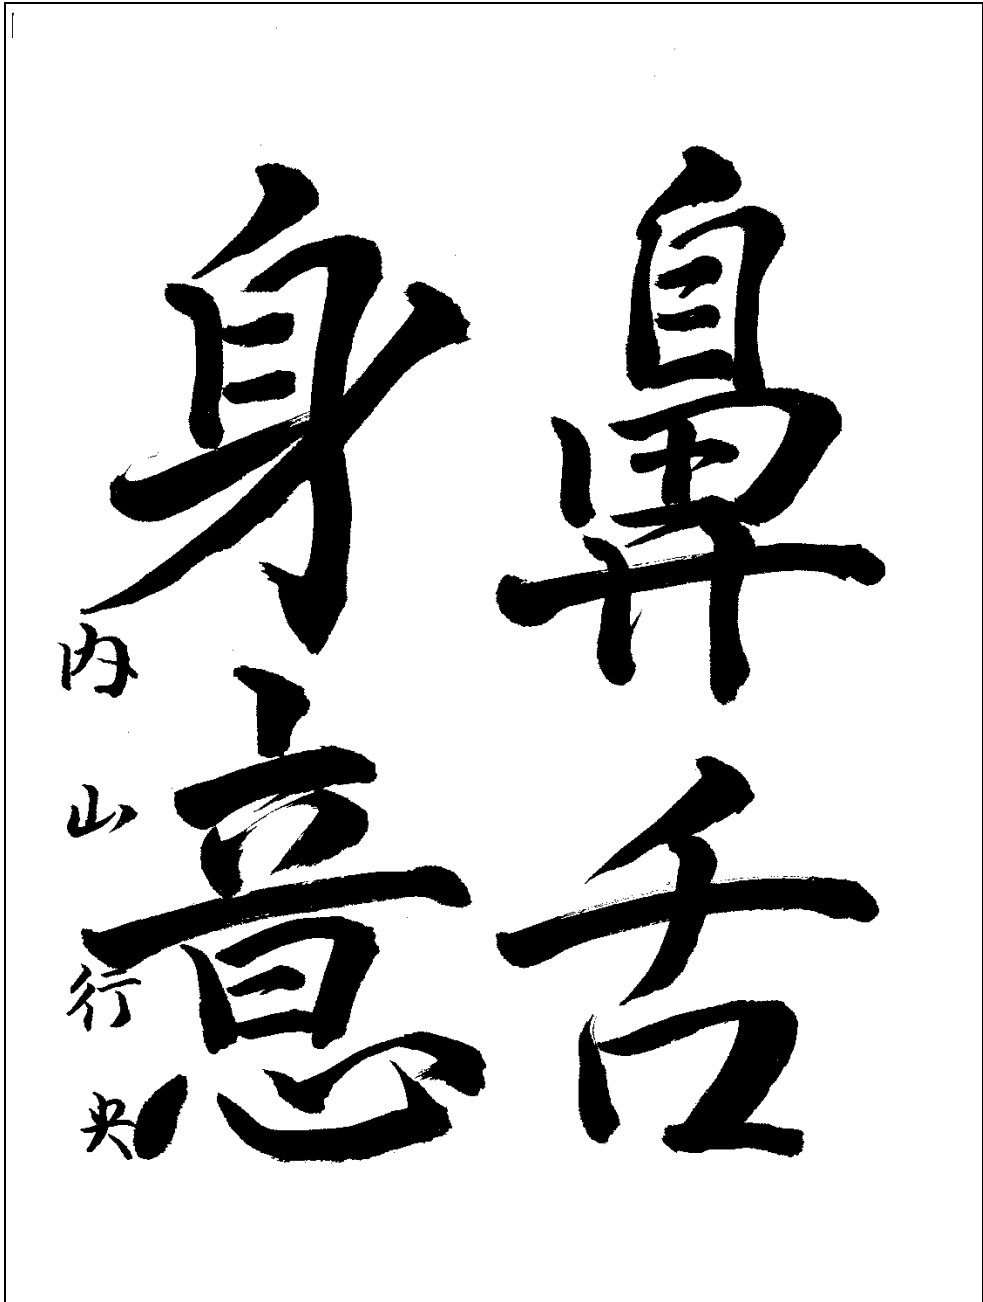 鼻舌
身意
内山行央